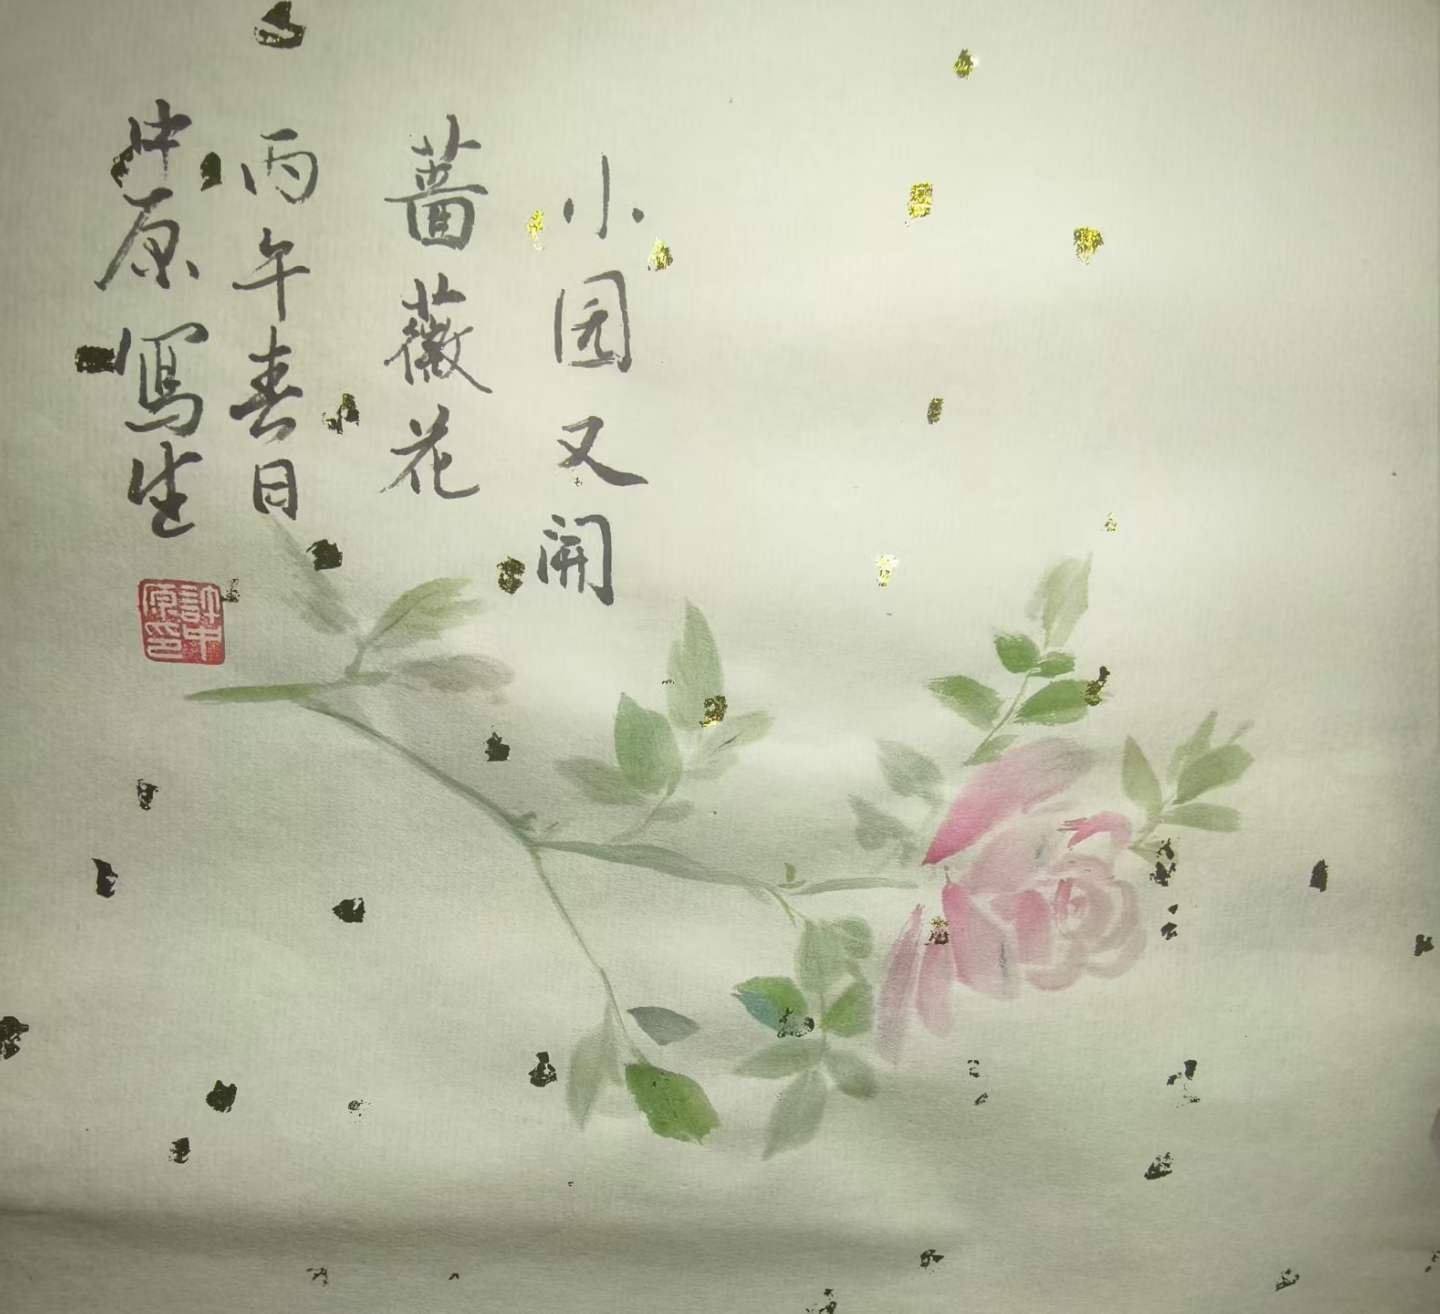 小园又開
蔷薇花
丙午春日
中原寫生
許中
原印